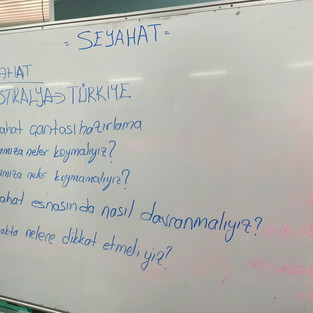 = SEYAHAT =
AHAT
STRALYA⇒TÜRKİYE
ahat çantası hazırlama
amıza neler koymalıyız?
amıza neler koymamalıyız?
ahat esnasında nasıl davranmalıyız?
akta nelere dikkat etmeliyiz?